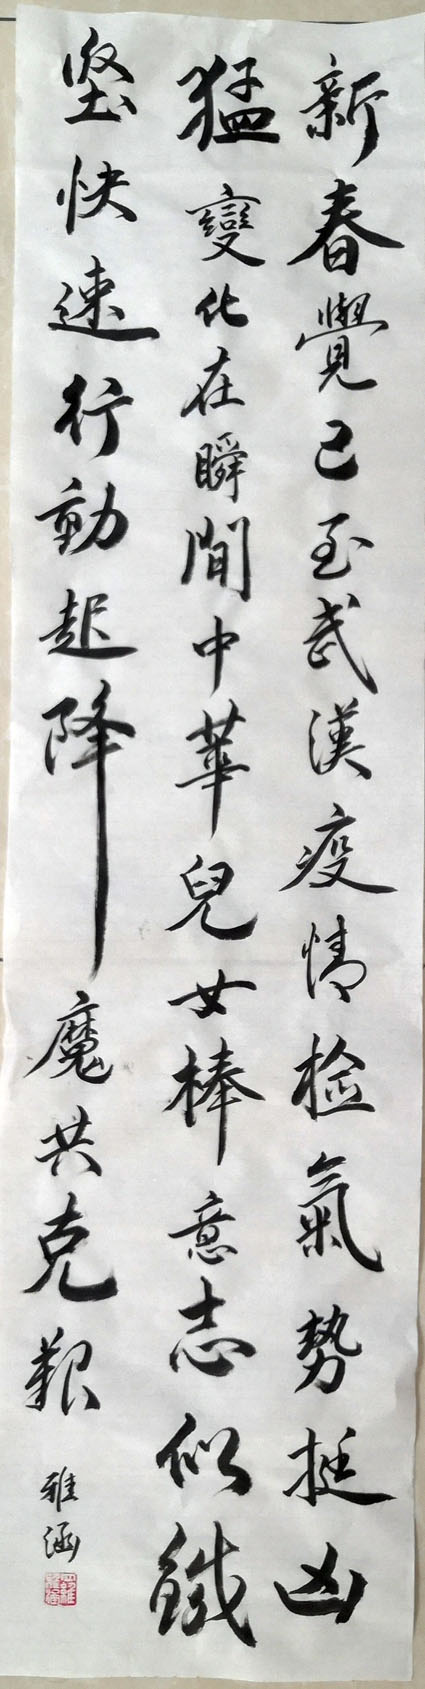 新春覺已至武漢疫情检氣勢挺凶
猛變化在瞬間中華兒女棒意志似鐵
坚快速行動起降魔共克艱
雅涵